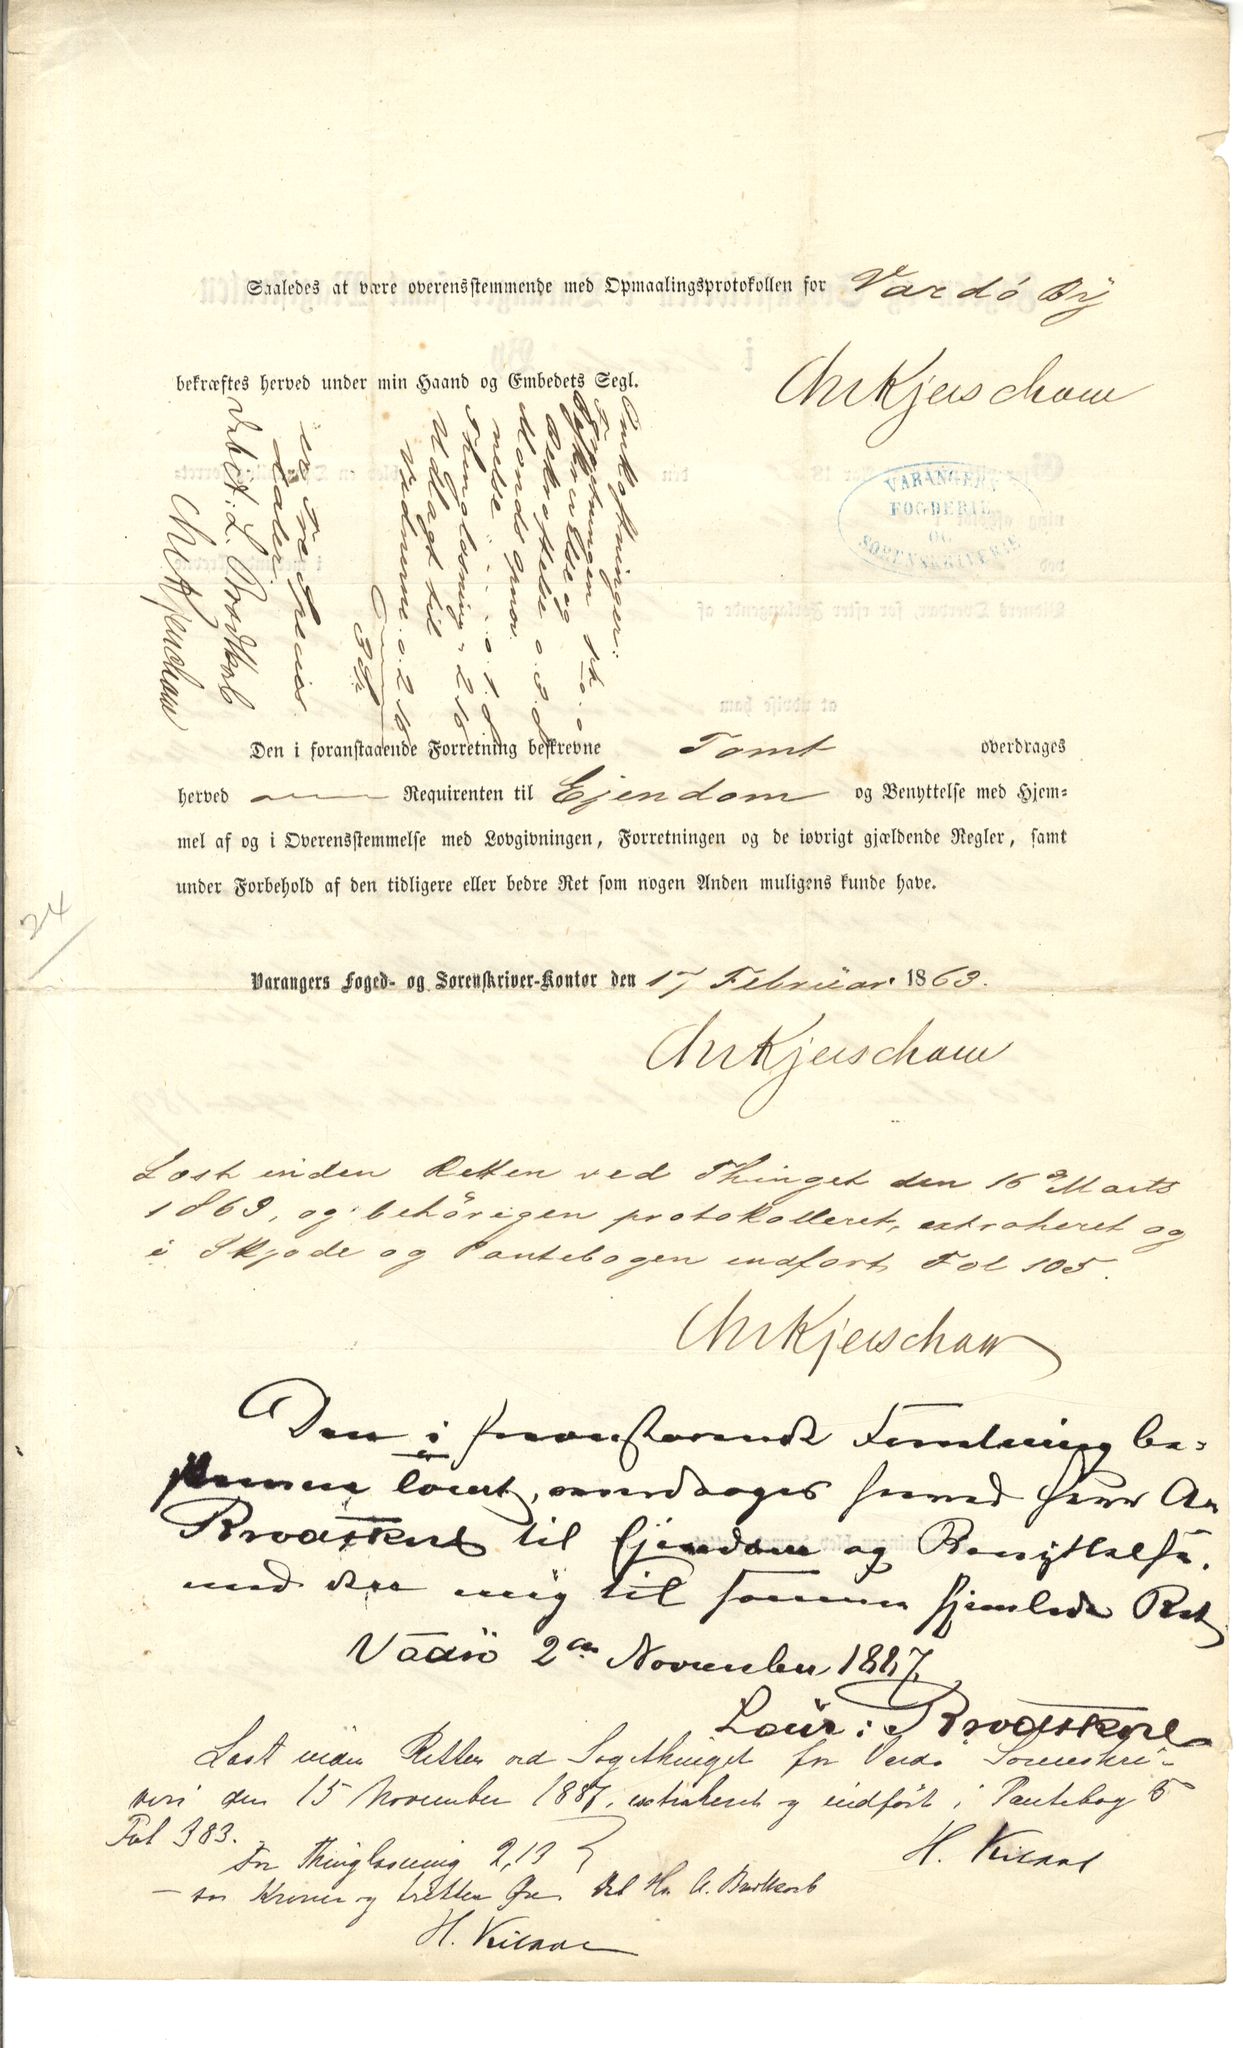 Saaledes at være overensstemmende med Opmaalingsprotokollen for Vardö By
bekræftes herved under min Haand og Embedets Segl.
ChrKjerschow
VARANGERS
FOGDERIE
OG
SORENSKRIVERIE
Omkostninger:
Forretningen
Bekræftelse
Thinglæsning " 2 16
Udlagt til
Vidnerne. o. 2 16
3
er Tre Species
Daler.
debet: L. Brodtkorb
ChrKjerschow
Den i foranstaaende Forretning beskrevne Tomt overdrages
herved Requirenten til Ejendom og Benyttelse med Hjem-
mel af og i Overensstemmelse med Lovgivningen, Forretningen og de iøvrigt gjældende Regler, samt
under Forbehold af den tidligere eller bedre Ret som nogen Anden muligens kunde have.
24
Varangers Foged- og Sorenskriver-Kontor den 17 Februar 1863.
ChrKjerschow
Læst inden Retten ved Thinget den 16de Marts
1863, og behörigen protokolleret, extraheret og
i Skjöde og Pantebogen indfört Fol 105.
ChrKjerschow
Den i foranstaaende Forretning be-
skrevne Tomt, overdrages herved Herr An
Brodtkorb til Ejendom og Benyttelse,
med den mig til samme hjemlede Ret
Vadsö 2den November 1887.
Laur: Brodtkorb
Læst inden Retten ved Sagethinget for Vardö Sorenskri-
veri den 15 November 1887, extraheret og indført i Pantebog 5
Fol 383.
H. Kieland
For Thinglæsning 2,13
– to Kroner og tretten Øre, debet Hr A. Brodtkorb
H. Kieland